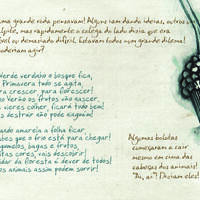 uma grande roda pensavam! Alguns iam dando ideias, outros
mas rapidamente o colega do lado dizia que era
ou demasiado difícil. Estavam todos num grande dilema!
poderiam agir?
verde verdaio o bosque fica,
Primavera tudo se agita,
para crescer, para florescer!
Verão os frutos vão nascer,
cheires colher, ficará tudo bem!
destruir não pode ninguém!
ando amarela a folha ficar,
sabes que o frio está para chegar!
Cogumelos, bagas e frutos,
tas cores, vais descobrir!
dar da floresta é dever de todos!
os animais assim podem sorrir!
Algumas bolotas
começaram a cair
mesmo em cima das
cabeças dos animais!
"Ui, ai"! Diziam eles!